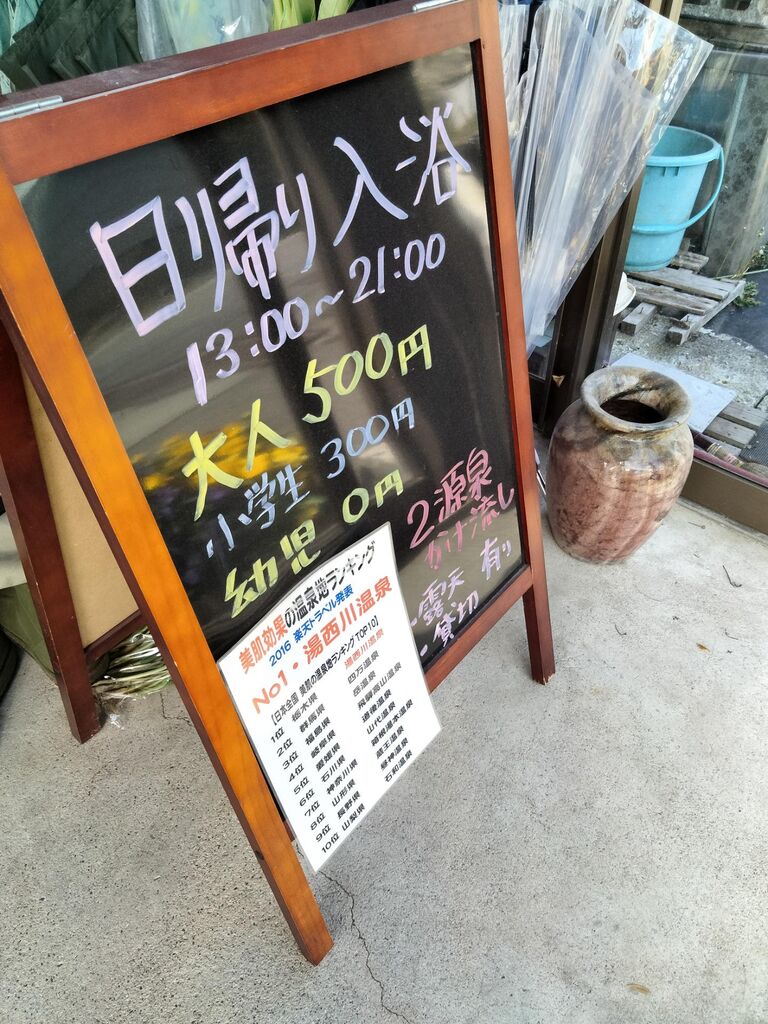 日帰り入浴
13:00～21:00
大人 500円
小学生 300円
幼児 0円
2源泉
かけ流し
・露天 有り
・貸切
美肌効果の温泉地ランキング
2016 楽天トラベル発表
No1・湯西川温泉
【日本全国 美肌の温泉地ランキングTOP10】
1位 栃木県 湯西川温泉
2位 群馬県 四万温泉
3位 福島県 岳温泉
4位 岐阜県 飛騨高山温泉
5位 愛媛県 道後温泉
6位 石川県 山代温泉
7位 神奈川県 箱根湯本温泉
8位 山形県 蔵王温泉
9位 長野県 温泉
10位 山梨県 石和温泉